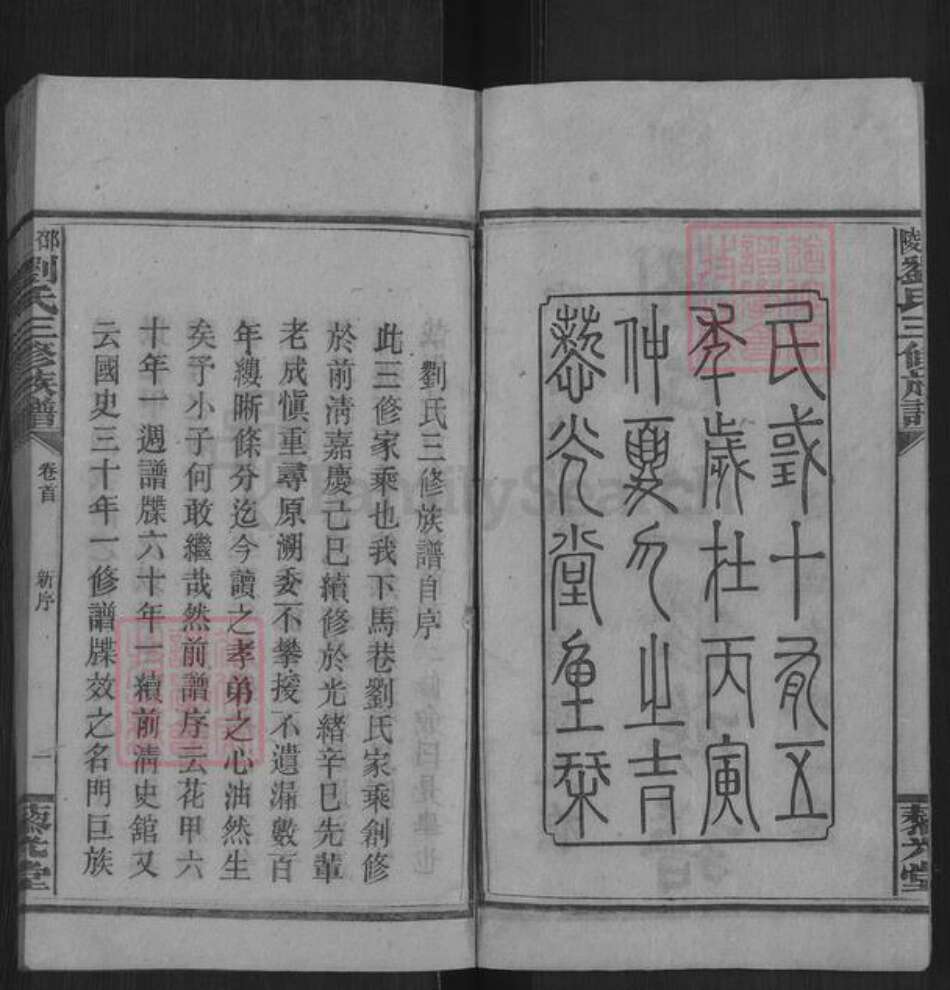 陵劉氏三修族譜
藜光堂
民或十有五
秊歲在丙寅
仲夏月之吉
藜光堂重栞
劉氏三修族譜自序
此三修家乘也我下馬巷劉氏家乘創修
於前清嘉慶己巳續修於光緒辛巳先輩
老成慎重尋原溯委不攀援不遺漏數百
年縷晰條分迄今讀之孝弟之心油然生
矣予小子何敢繼哉然前譜序云花甲六
十年一週譜牒六十年一續前清史舘又
云國史三十年一修譜牒效之名門巨族
邵劉氏三修族譜
卷首
新序
一
藜光堂
FamilySearch